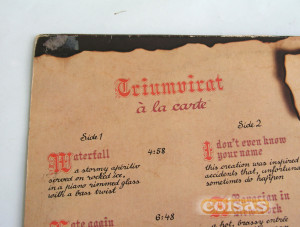 Triumvirat
à la carte
Side 1
Waterfall 4:58
a stormy apéritio
served on rocked ice,
in a piano rimmed glass
with a bass twist
Late again 6:48
Side 2
I don't even know
your name
this creation was inspired
accidents that, unfortun
sometimes do happen
coisas